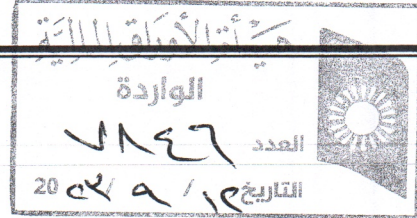 هيئة الأوراق المالية
الواردة
العدد ٧٨٤٦
التاريخ / ٩ / 20